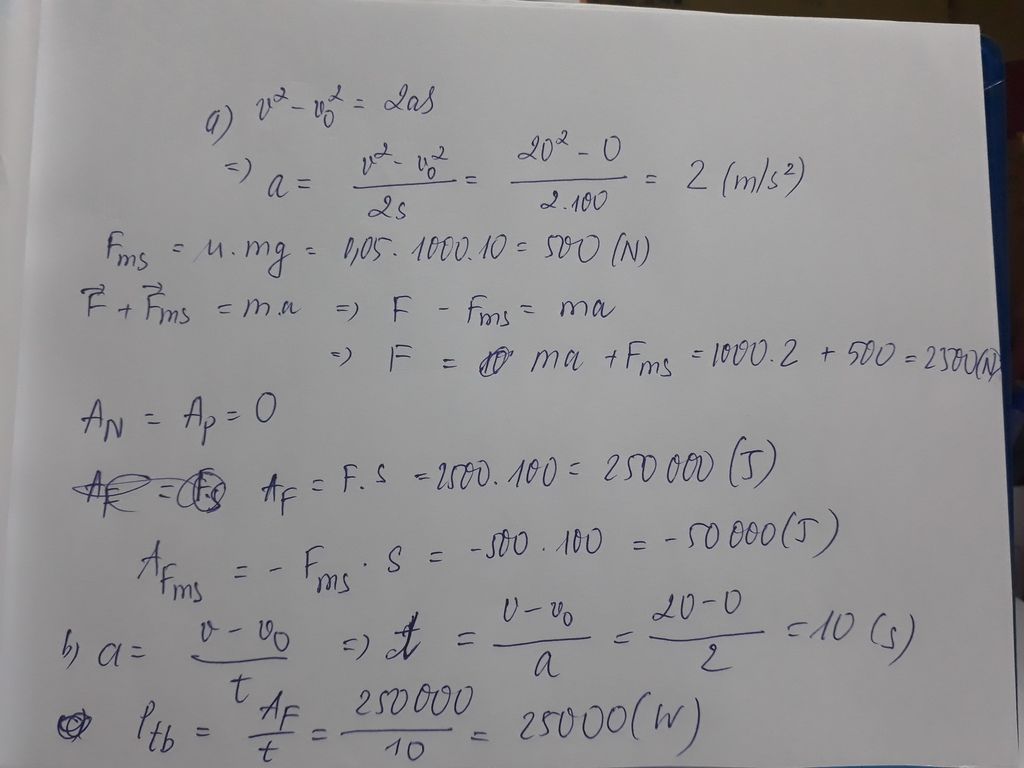 a) v² - v₀² = 2aS
=) a = (v² - v₀²)/(2s) = (20² - 0)/(2.100) = 2 (m/s²)
Fms = μ.mg = 0,05.1000.10 = 500 (N)
F⃗ + F⃗ms = m.a =) F - Fms = ma
=) F = ma + Fms = 1000.2 + 500 = 2500(N)
A_N = A_P = 0
A_F = F.s A_F = F.s = 2500.100 = 250000 (J)
A_Fms = - Fms.s = -500.100 = -50000(J)
b) a = (v - v₀)/t =) t = (v - v₀)/a = (20-0)/2 = 10 (s)
Ptb = A_F/t = 250000/10 = 25000(W)